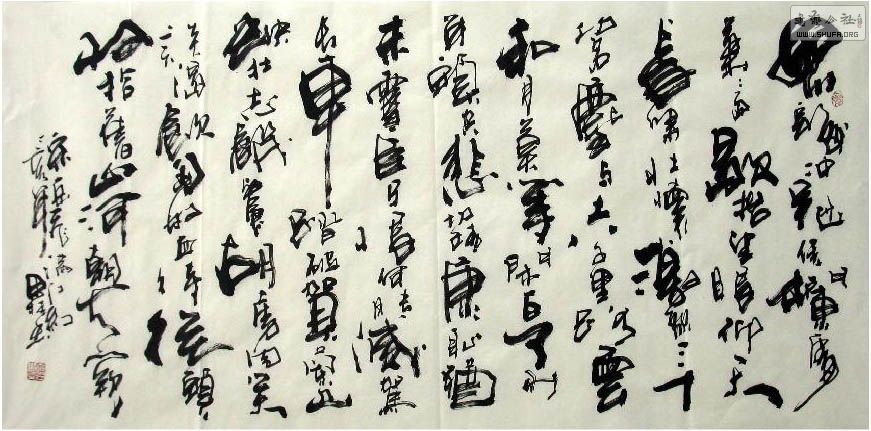 怒髮衝冠憑欄處
瀟瀟雨歇抬望眼仰天
長嘯壯懷激烈三十
功名塵與土八千里路雲
和月莫等閒白了少
年頭空悲切靖康恥猶
未雪臣子恨何時滅駕
長車踏破賀蘭山
缺壯志飢餐胡虜肉笑
談渴飲匈奴血待從頭
收拾舊山河朝天闕
宋岳飛滿江紅
WWW.SHUFA.ORG